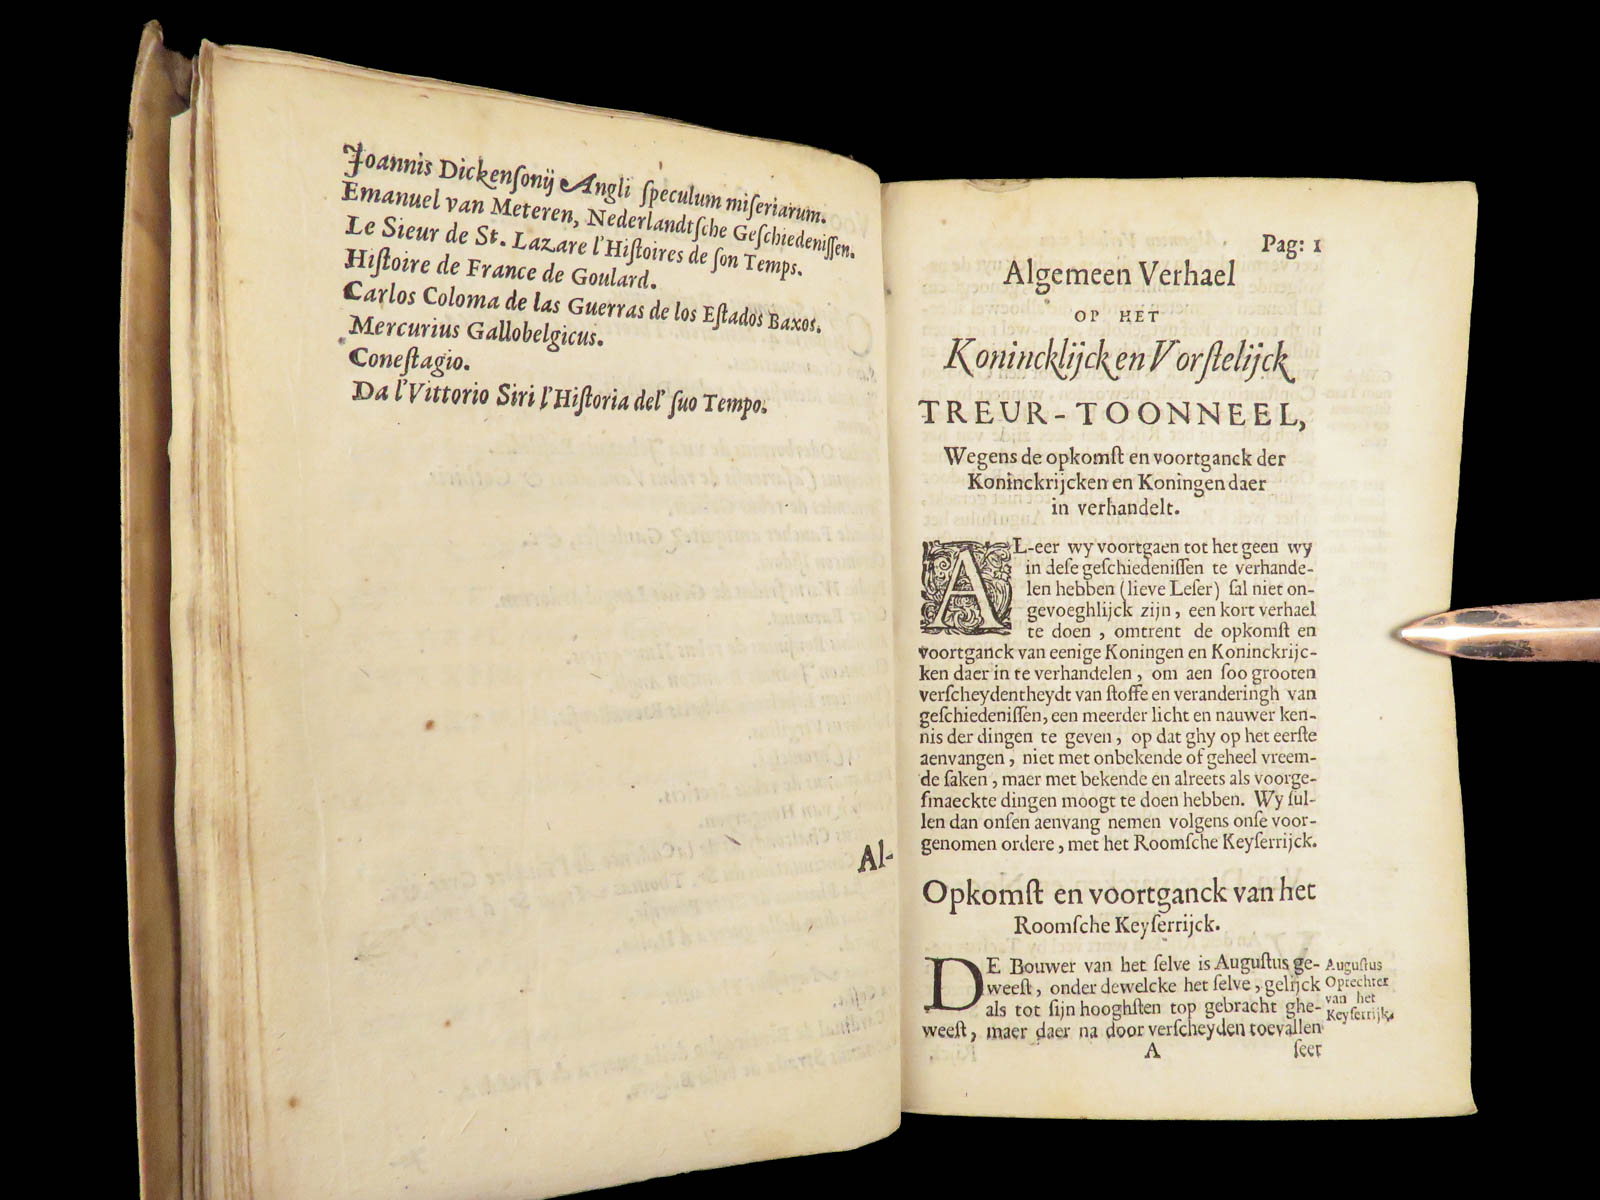 Joannis Dickenſonij Angli ſpeculum miſeriarum.
Emanuel van Meteren, Nederlandtſche Geſchiedeniſſen.
Le Sieur de St. Lazare l'Hiſtoires de ſon Temps.
Hiſtoire de France de Goulard.
Carlos Coloma de las Guerras de los Eſtados Baxos.
Mercurius Gallobelgicus.
Coneſtagio.
Da l'Vittorio Siri l'Hiſtoria del' ſuo Tempo.
Al-
Pag: 1
Algemeen Verhael
OP HET
Konincklijck en Vorſtelijck
TREUR-TOONNEEL,
Wegens de opkomſt en voortganck der
Koninckrijcken en Koningen daer
in verhandelt.
AL-eer wy voortgaen tot het geen wy
in deſe geſchiedeniſſen te verhande-
len hebben (lieve Leſer) ſal niet on-
gevoeghlijck zijn, een kort verhael
te doen, omtrent de opkomſt en
voortganck van eenige Koningen en Koninckrijc-
ken daer in te verhandelen, om aen ſoo grooten
verſcheydentheydt van ſtoffe en veranderingh van
geſchiedeniſſen, een meerder licht en nauwer ken-
nis der dingen te geven, op dat ghy op het eerſte
aenvangen, niet met onbekende of geheel vreem-
de ſaken, maer met bekende en alreets als voorge-
ſmaeckte dingen moogt te doen hebben. Wy ſul-
len dan onſen aenvang nemen volgens onſe voor-
genomen ordere, met het Roomſche Keyſerrijck.
Opkomſt en voortganck van het
Roomſche Keyſerrijck.
DE Bouwer van het ſelve is Auguſtus ge-
weeſt, onder dewelcke het ſelve, gelijck
als tot ſijn hooghſten top gebracht ghe-
weeſt, maer daer na door verſcheyden toevallen
Auguſtus
Oprechter
van het
Keyſerrijk.
A
ſeer